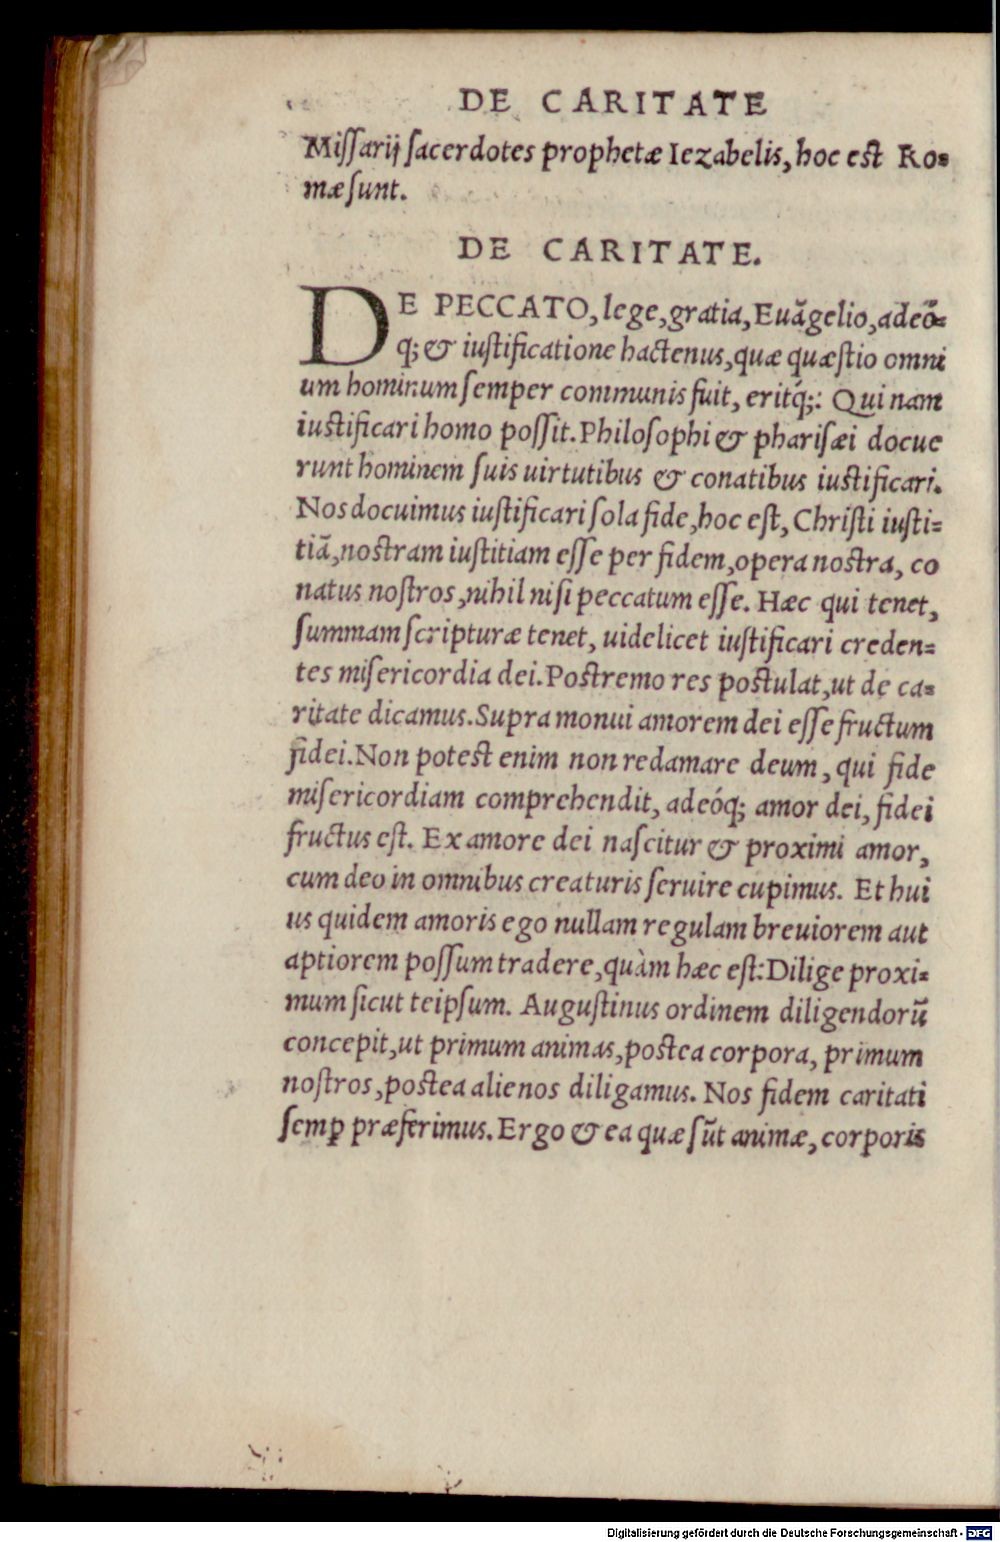 DE CARITATE
Miſſarij ſacerdotes prophetæ Iezabelis, hoc eſt Ro=
mæ ſunt.
DE CARITATE.
DE PECCATO, lege, gratia, Euãgelio, adeõ=
q́; & iuſtificatione hactenus, quæ quæſtio omni
um hominum ſemper communis fuit, eritq́;: Qui nam
iuſtificari homo poſſit. Philoſophi & phariſæi docue
runt hominem ſuis uirtutibus & conatibus iuſtificari.
Nos docuimus iuſtificari ſola fide, hoc eſt, Chriſti iuſti=
tiã, noſtram iuſtitiam eſſe per fidem, opera noſtra, co
natus noſtros, nihil niſi peccatum eſſe. Hæc qui tenet,
ſummam ſcripturæ tenet, uidelicet iuſtificari creden=
tes miſericordia dei. Poſtremo res poſtulat, ut de ca=
ritate dicamus. Supra monui amorem dei eſſe fructum
fidei. Non poteſt enim non redamare deum, qui fide
miſericordiam comprehendit, adeóq; amor dei, fidei
fructus eſt. Ex amore dei naſcitur & proximi amor,
cum deo in omnibus creaturis ſeruire cupimus. Et hui
us quidem amoris ego nullam regulam breuiorem aut
aptiorem poſſum tradere, quàm hæc eſt: Dilige proxi=
mum ſicut teipſum. Auguſtinus ordinem diligendorũ
concepit, ut primum animas, poſtea corpora, primum
noſtros, poſtea alienos diligamus. Nos fidem caritati
ſemꝑ præferimus. Ergo & ea quæ ſũt animæ, corporis
Digitalisierung gefördert durch die Deutsche Forschungsgemeinschaft - DFG